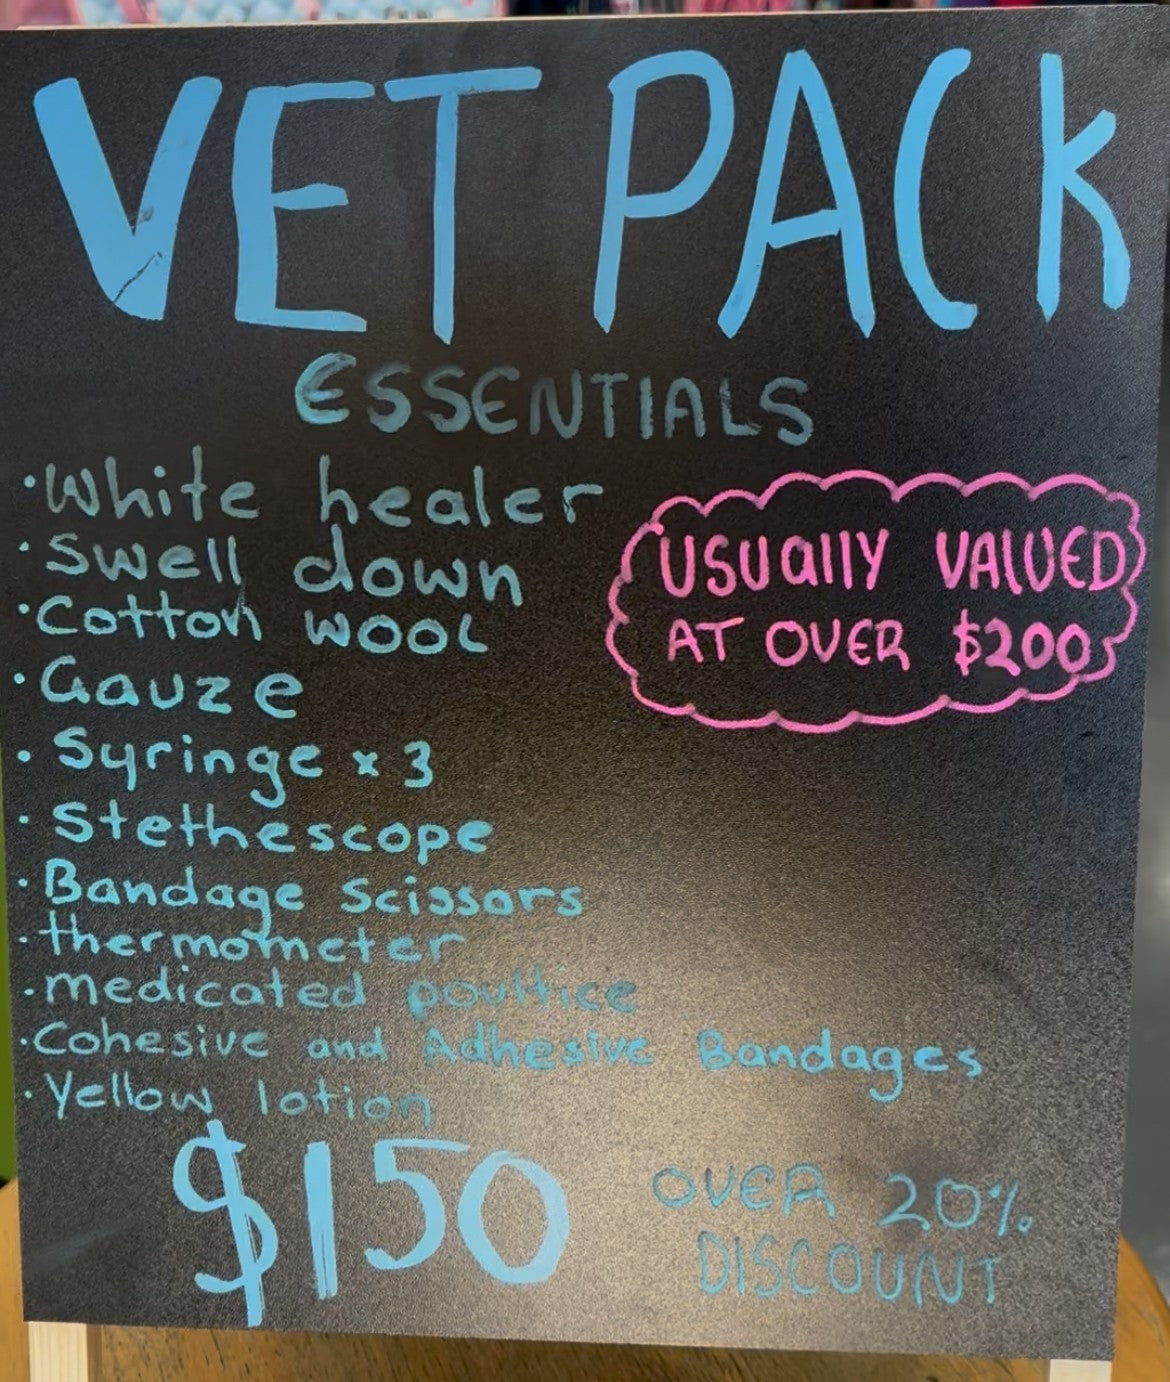 VET PACK
ESSENTIALS
·White healer
·Swell down
·Cotton wool
·Gauze
·Syringe x 3
·Stethescope
·Bandage Scissors
·thermometer
·medicated poultice
·Cohesive and Adhesive Bandages
·Yellow lotion
USUAllY VALUED
AT OVER $200
$150
OVER 20%
DISCOUNT